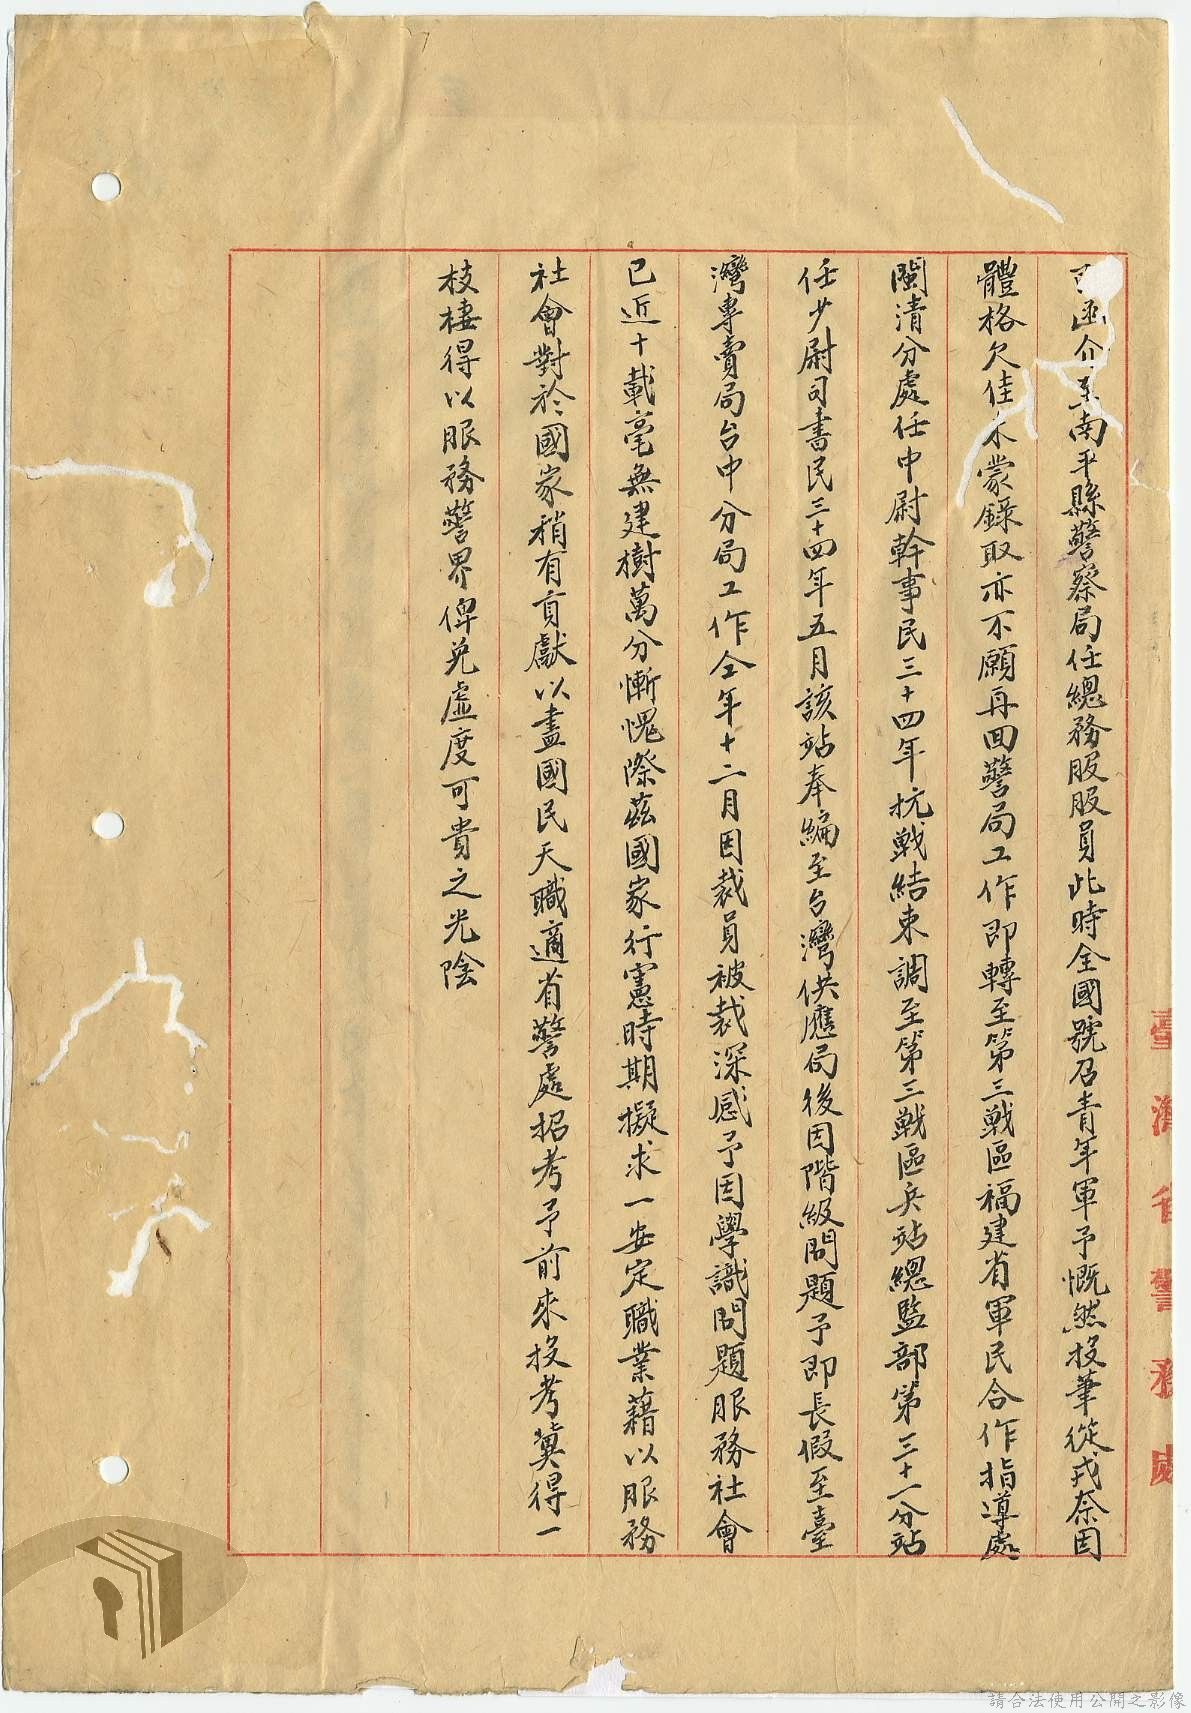 函介至南平縣警察局任總務服服員此時全國號召青年軍予慨然投筆從戎奈因
體格欠佳不蒙錄取亦不願再回警局工作即轉至第三戰區福建省軍民合作指導處
閩清分處任中尉幹事民三十四年抗戰結束調至第三戰區兵站總監部第三十一分站
任少尉司書民三十四年五月該站奉編至台灣供應局後因階級問題予即長假至臺
灣專賣局台中分局工作仝年十二月因裁員被裁深感予因學識問題服務社會
已近十載毫無建樹萬分慚愧際茲國家行憲時期擬求一安定職業藉以服務
社會對於國家稍有貢獻以盡國民天職適省警處招考予前來投考冀得一
枝棲得以服務警界俾免虛度可貴之光陰
臺灣省警務處
請合法使用公開之影像